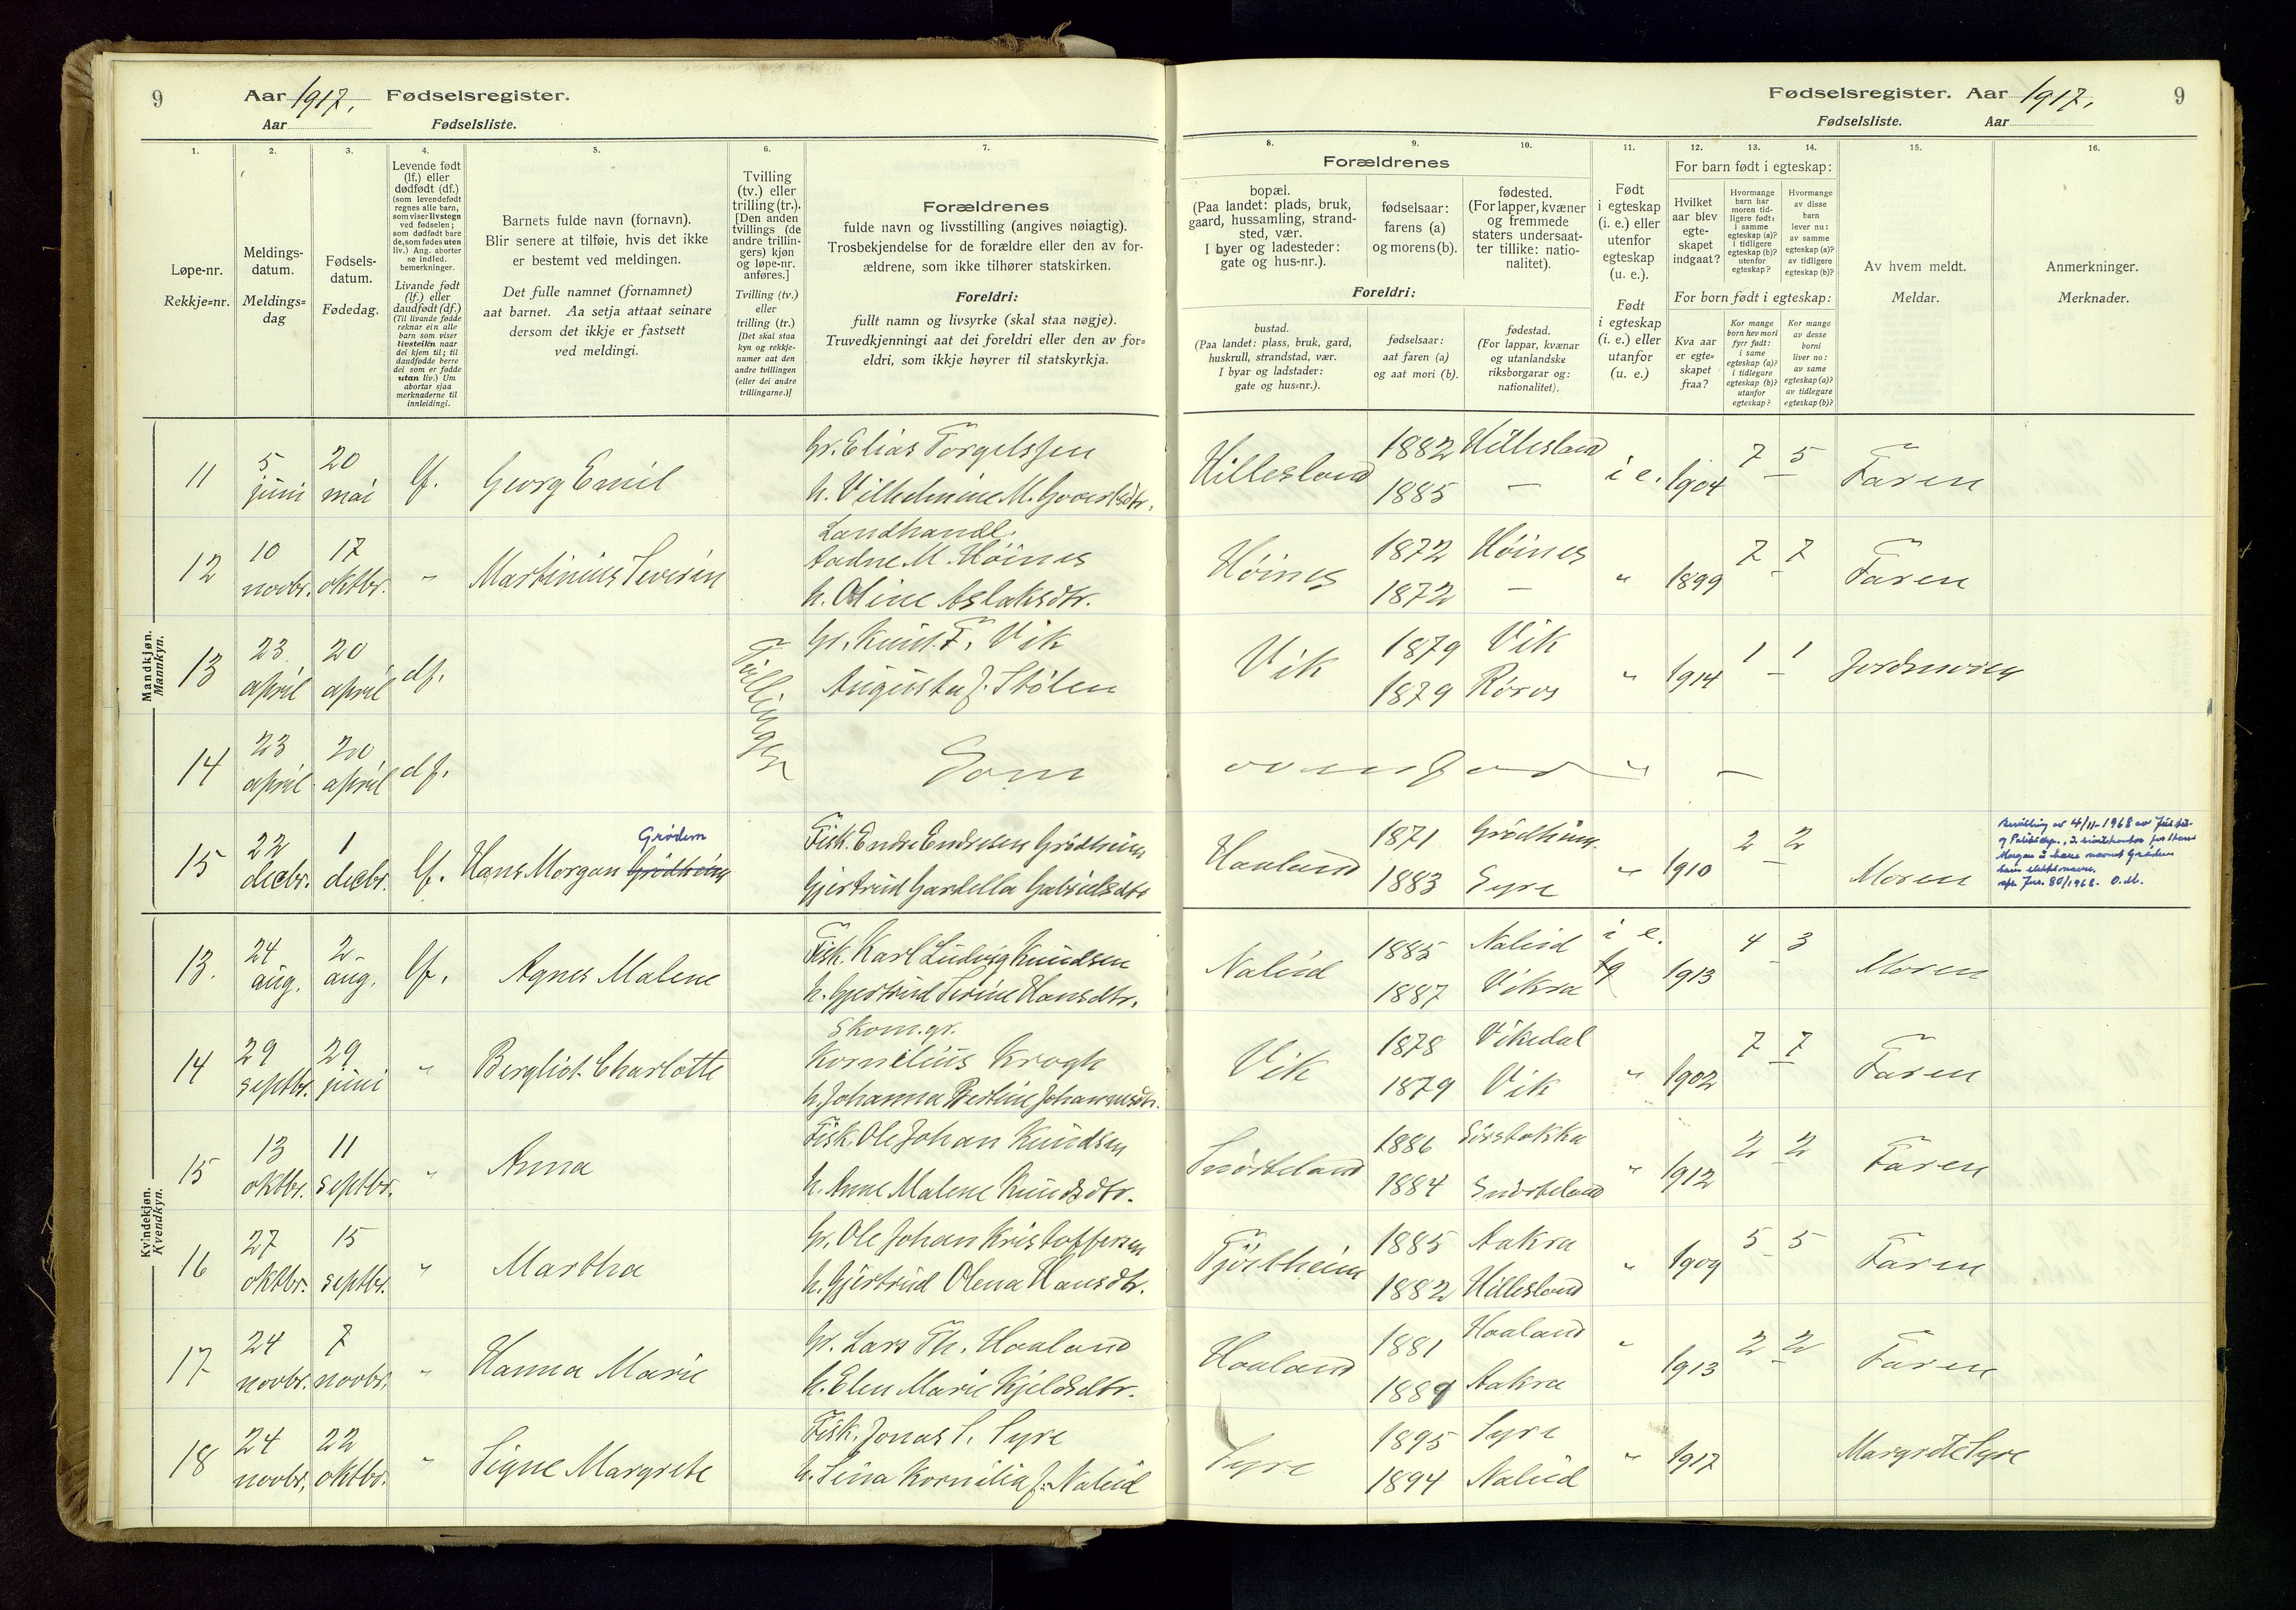 9 Aar 1917. Fødselsregister.
Aar Fødselsliste.
Fødselsregister. Aar 1917. 9
Fødselsliste. Aar
1. 2. 3. 4. 5. 6. 7.
Løpe-nr.
Rekkje=nr.
Meldings-
datum.
Meldings=
dag
Fødsels-
datum.
Fødedag.
Levende født
(lf.) eller
dødfødt (df.)
(som levendefødt
regnes alle barn,
som viser livstegn
ved fødselen;
som dødfødt bare
de, som fødes uten
liv.) Ang. aborter
se indled.
bemerkninger.
Livande født
(lf.) eller
daudfødt (df.)
(Til livande fødde
reknar ein alle
barn som viser
livsteikn naar
dei kjem til; til
daudfødde berre
dei som er fødde
utan liv.) Um
abortar sjaa
merknaderne til
innleidingi.
Barnets fulde navn (fornavn).
Blir senere at tilføie, hvis det ikke
er bestemt ved meldingen.
Det fulle namnet (fornamnet)
aat barnet. Aa setja attaat seinare
dersom det ikkje er fastsett
ved meldingi.
Tvilling
(tv.) eller
trilling (tr.).
[Den anden
tvillings (de
andre trillin-
gers) kjøn
og løpe-nr.
anføres.]
Tvilling (tv.)
eller
trilling (tr.)
[Det skal staa
kyn og rekkje-
numer aat den
andre tvillingen
(eller dei andre
trillingarne.)]
Forældrenes
fulde navn og livsstilling (angives nøiagtig).
Trosbekjendelse for de forældre eller den av for-
ældrene, som ikke tilhører statskirken.
Foreldri:
fullt namn og livsyrke (skal staa nøgje).
Truvedkjenningi aat dei foreldri eller den av for=
eldri, som ikkje høyrer til statskyrkja.
8. 9. 10. 11. 12. 13. 14. 15. 16.
Forældrenes
bopæl.
(Paa landet: plads, bruk,
gaard, hussamling, strand-
sted, vær.
I byer og ladesteder:
gate og hus-nr.).
fødselsaar:
farens (a)
og morens (b).
fødested.
(For lapper, kvæner
og fremmede
staters undersaat-
ter tillike: natio-
nalitet).
Foreldri:
bustad.
(Paa landet: plass, bruk, gard,
huskrull, strandstad, vær.
I byar og ladstader:
gate og hus=nr.).
fødselsaar:
aat faren (a)
og aat mori (b).
fødestad.
(For lappar, kvænar
og utanlandske
riksborgarar og:
nationalitet).
Født
i egteskap
(i. e.) eller
utenfor
egteskap
(u. e.).
Født
i egteskap
(i. e.) eller
utanfor
(u. e.)
For barn født i egteskap:
Hvilket
aar blev
egte-
skapet
indgaat?
Hvormange
barn har
moren tid-
ligere født:
i samme
egteskap (a)?
i tidligere
egteskap (b)?
utenfor
egteskap?
Hvormange
av disse
barn
lever nu:
av samme
egteskap (a)?
av tidligere
egteskap (b)?
For born født i egteskap:
Kva aar
er egte=
skapet
fraa?
Kor mange
born hev mori
fyrr født:
i same
egteskap (a)?
i tidlegare
egteskap (b)?
utanfor
egteskap?
Kor mange
av desse
borni
liver no:
av same
egteskap (a)?
av tidlegare
egteskap (b)?
Av hvem meldt.
Meldar.
Anmerkninger.
Merknader.
Mandkjøn.
Mannkyn.
11 5 juni 20 mai lf. Georg Emil
Gr. Elias Torgelssen
h. Vilhelmine M. Govertsdtr.
Hillesland 1882 Hillesland i e. 1904 7 - 5 Faren
1885 —
12 10 novbr. 17 oktbr. " Martinius Severin
Landhandl.
Aadne M. Høines
h. Oline Aslaksdtr.
Høines 1872 Høines " 1899 7 - 7 Faren
1872 —
13 23 april 20 april df. Tvillinger
Gr. Knut T. Vik
Augusta f. Stølen
Vik 1879 Vik " 1914 1 - 1 Jordmoren
1879 Røros
14 23 april 20 april df. Som ovenfor " —
15 22 decbr. 1 decbr. lf. Hans Morgan Grødheim
Grødem
Fisk. Endre Endresen Grødheim
Gjertrud Gardella Gabrielsdtr
Haaland 1871 Grødheim " 1910 2 - 2 Moren
1883 Syre
Bevilling av 4/11-1968 av Justis-
og Politidep., 2. sivilkontor for Hans
Morgan å bære navnet Grødem
som slektsnavn.
sft. Jnr. 80/1968. O.M.
Kvindekjøn.
Kvendkyn.
13. 24 aug. 2 aug. lf. Agnes Malene
Fisk. Karl Ludvig Knudsen
h. Gjertrud Serine Hansdtr.
Nalud 1885 Nalud i e. 1913 4 - 3 Moren
1887 Vikra
14 29 septbr. 29 juni " Bergliot Charlotte
Skom. gr.
Kornelius Krogh
h. Johanna Bertine Johannesdtr.
Vik 1878 Vikedal " 1902 7 - 7 Faren
1879 Vik
15 13 oktbr. 11 septbr. " Anna
Fisk. Ole Johan Knudsen
h. Anne Malene Knudsdtr.
Snørteland 1886 Sørstokka " 1912 2 - 2 Faren
1884 Snørteland
16 27 oktbr. 15 septbr. " Martha
Gr. Ole Johan Kristoffersen
h. Gjertrud Olena Hansdtr.
Tjøstheim 1885 Aakra " 1909 5 - 5 Faren
1882 Hillesland
17 24 novbr. 7 novbr. " Hanna Marie
Gr. Lars Th. Haaland
h. Elen Marie Kjeldsdtr.
Haaland 1881 Haaland " 1913 2 - 2 Faren
1889 Aakra
18 24 novbr. 22 oktbr. " Signe Margrete
Fisk. Jonas S. Syre
h. Sina Kornilia f. Nalud
Syre 1895 Syre " 1917 Margrete Syre
1894 Nalud